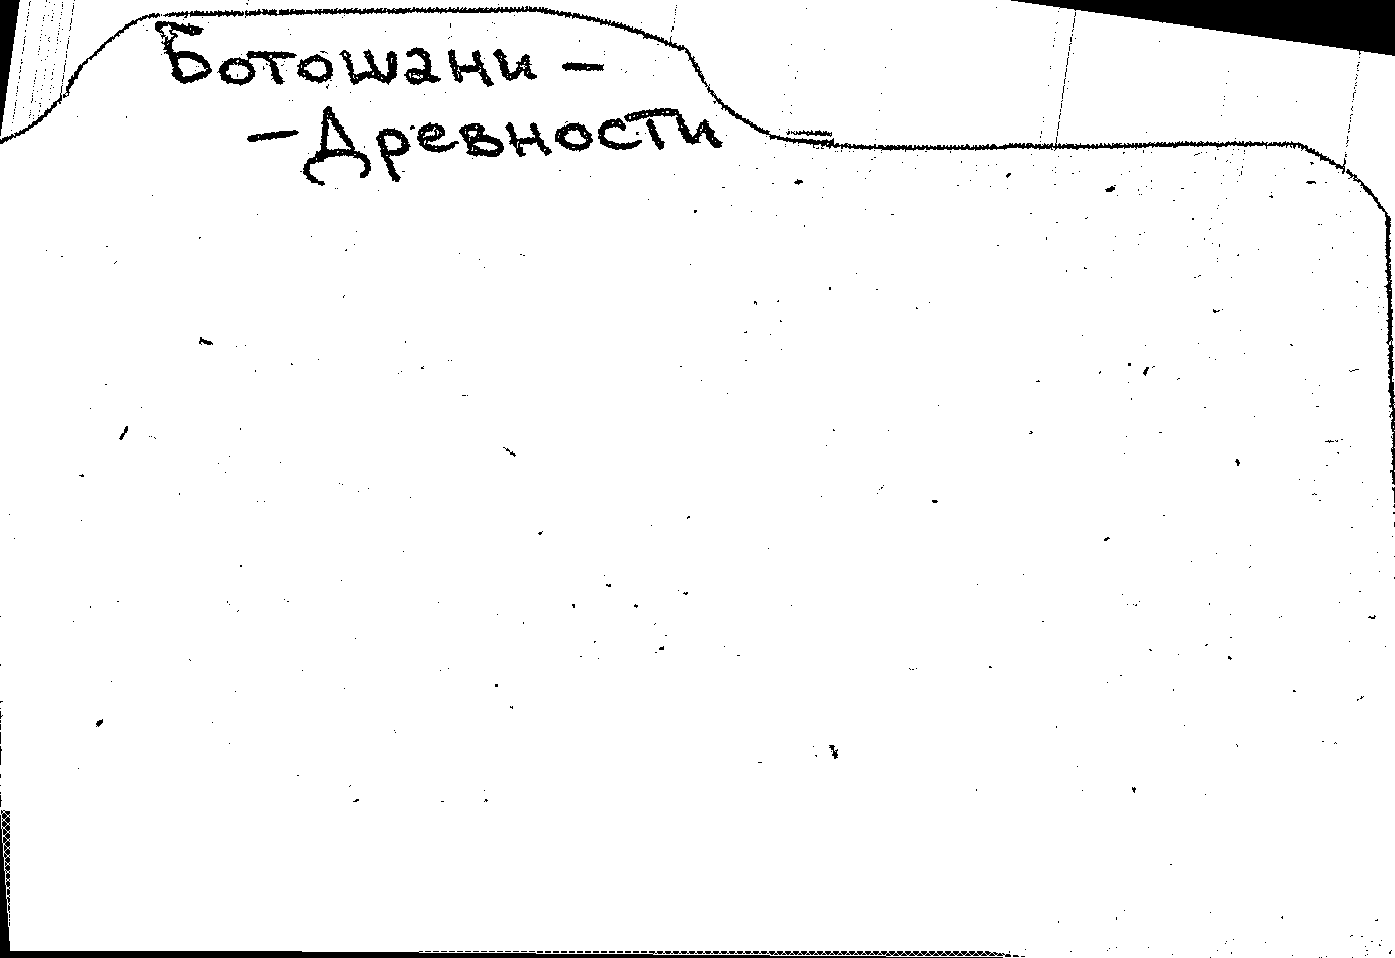 Ботошани –
– Древности